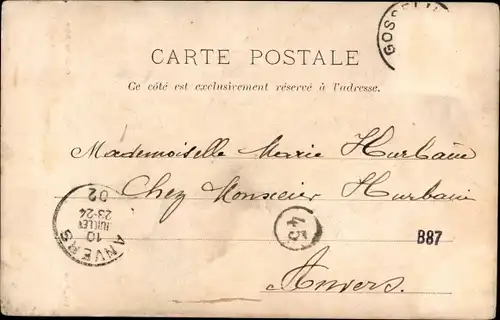 GOSSELI
CARTE POSTALE
Ce côté est exclusivement réservé à l'adresse.
Mademoiselle Marie Hurbain
Chez Monsieur Hurbain
Anvers.
ANVERS
10
JUILLET
23-24
02
45
B87